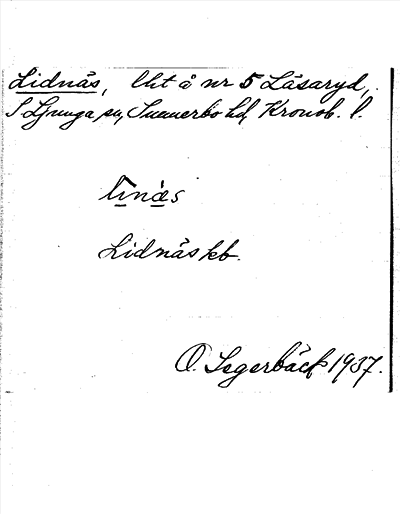 Lidnäs, lht å nr 5 Läsaryd,
S Ljunga sn, Sunnerbo hd, Kronob. l.
li̱næ̱s
Lidnäs kb.
O. Segerbäck 1937.